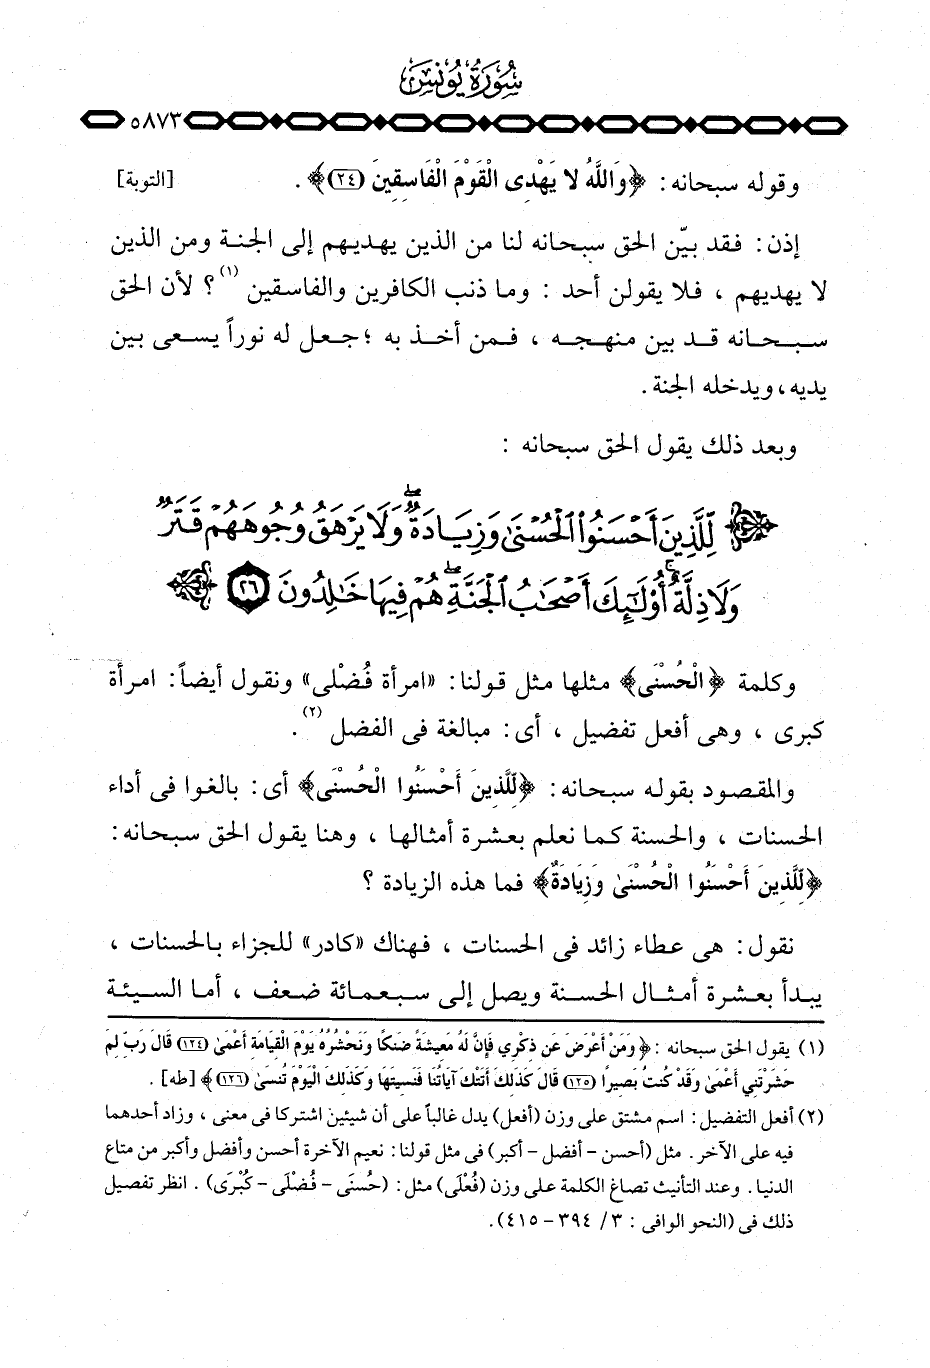 سُورَةُ يُونُسَ
٥٨٧٣
وقوله سبحانه: ﴿وَاللَّهُ لا يَهْدِي الْقَوْمَ الْفَاسِقِينَ (٢٤)﴾ . [التوبة]
إذن: فقد بيّن الحق سبحانه لنا من الذين يهديهم إلى الجنة ومن الذين
لا يهديهم ، فلا يقولن أحد : وما ذنب الكافرين والفاسقين (١) ؟ لأن الحق
سبحانه قد بين منهجه ، فمن أخذ به ؛ جعل له نوراً يسعى بين
يديه، ويدخله الجنة .
وبعد ذلك يقول الحق سبحانه :
لِّلَّذِينَ أَحْسَنُوا۟ ٱلْحُسْنَىٰ وَزِيَادَةٌ ۖ وَلَا يَرْهَقُ وُجُوهَهُمْ قَتَرٌ
وَلَا ذِلَّةٌ ۚ أُو۟لَٰٓئِكَ أَصْحَٰبُ ٱلْجَنَّةِ ۖ هُمْ فِيهَا خَٰلِدُونَ ٢٦
وكلمة ﴿الْحُسْنَى﴾ مثلها مثل قولنا: «امرأة فُضْلى» ونقول أيضاً: امرأة
كبرى ، وهى أفعل تفضيل ، أى: مبالغة فى الفضل (٢) .
والمقصود بقوله سبحانه: ﴿لِّلَّذِينَ أَحْسَنُوا الْحُسْنَى﴾ أى: بالغوا فى أداء
الحسنات ، والحسنة كما نعلم بعشرة أمثالها ، وهنا يقول الحق سبحانه:
﴿لِّلَّذِينَ أَحْسَنُوا الْحُسْنَىٰ وَزِيَادَةٌ﴾ فما هذه الزيادة ؟
نقول: هى عطاء زائد فى الحسنات ، فهناك «كادر» للجزاء بالحسنات ،
يبدأ بعشرة أمثال الحسنة ويصل إلى سبعمائة ضعف ، أما السيئة
(١) يقول الحق سبحانه : ﴿ وَمَنْ أَعْرَضَ عَن ذِكْرِي فَإِنَّ لَهُ مَعِيشَةً ضَنكًا وَنَحْشُرُهُ يَوْمَ الْقِيَامَةِ أَعْمَىٰ (١٢٤) قَالَ رَبِّ لِمَ
حَشَرْتَنِي أَعْمَىٰ وَقَدْ كُنتُ بَصِيرًا (١٢٥) قَالَ كَذَٰلِكَ أَتَتْكَ آيَاتُنَا فَنَسِيتَهَا وَكَذَٰلِكَ الْيَوْمَ تُنسَىٰ (١٢٦) ﴾ [طه] .
(٢) أفعل التفضيل: اسم مشتق على وزن (أفعل) يدل غالباً على أن شيئين اشتركا فى معنى ، وزاد أحدهما
فيه على الآخر. مثل (أحسن - أفضل - أكبر) فى مثل قولنا: نعيم الآخرة أحسن وأفضل وأكبر من متاع
الدنيا. وعند التأنيث تصاغ الكلمة على وزن (فُعْلَى) مثل: (حُسنَى - فُضْلَى - كُبْرَى) . انظر تفصيل
ذلك فى (النحو الوافى : ٣/ ٣٩٤ - ٤١٥).